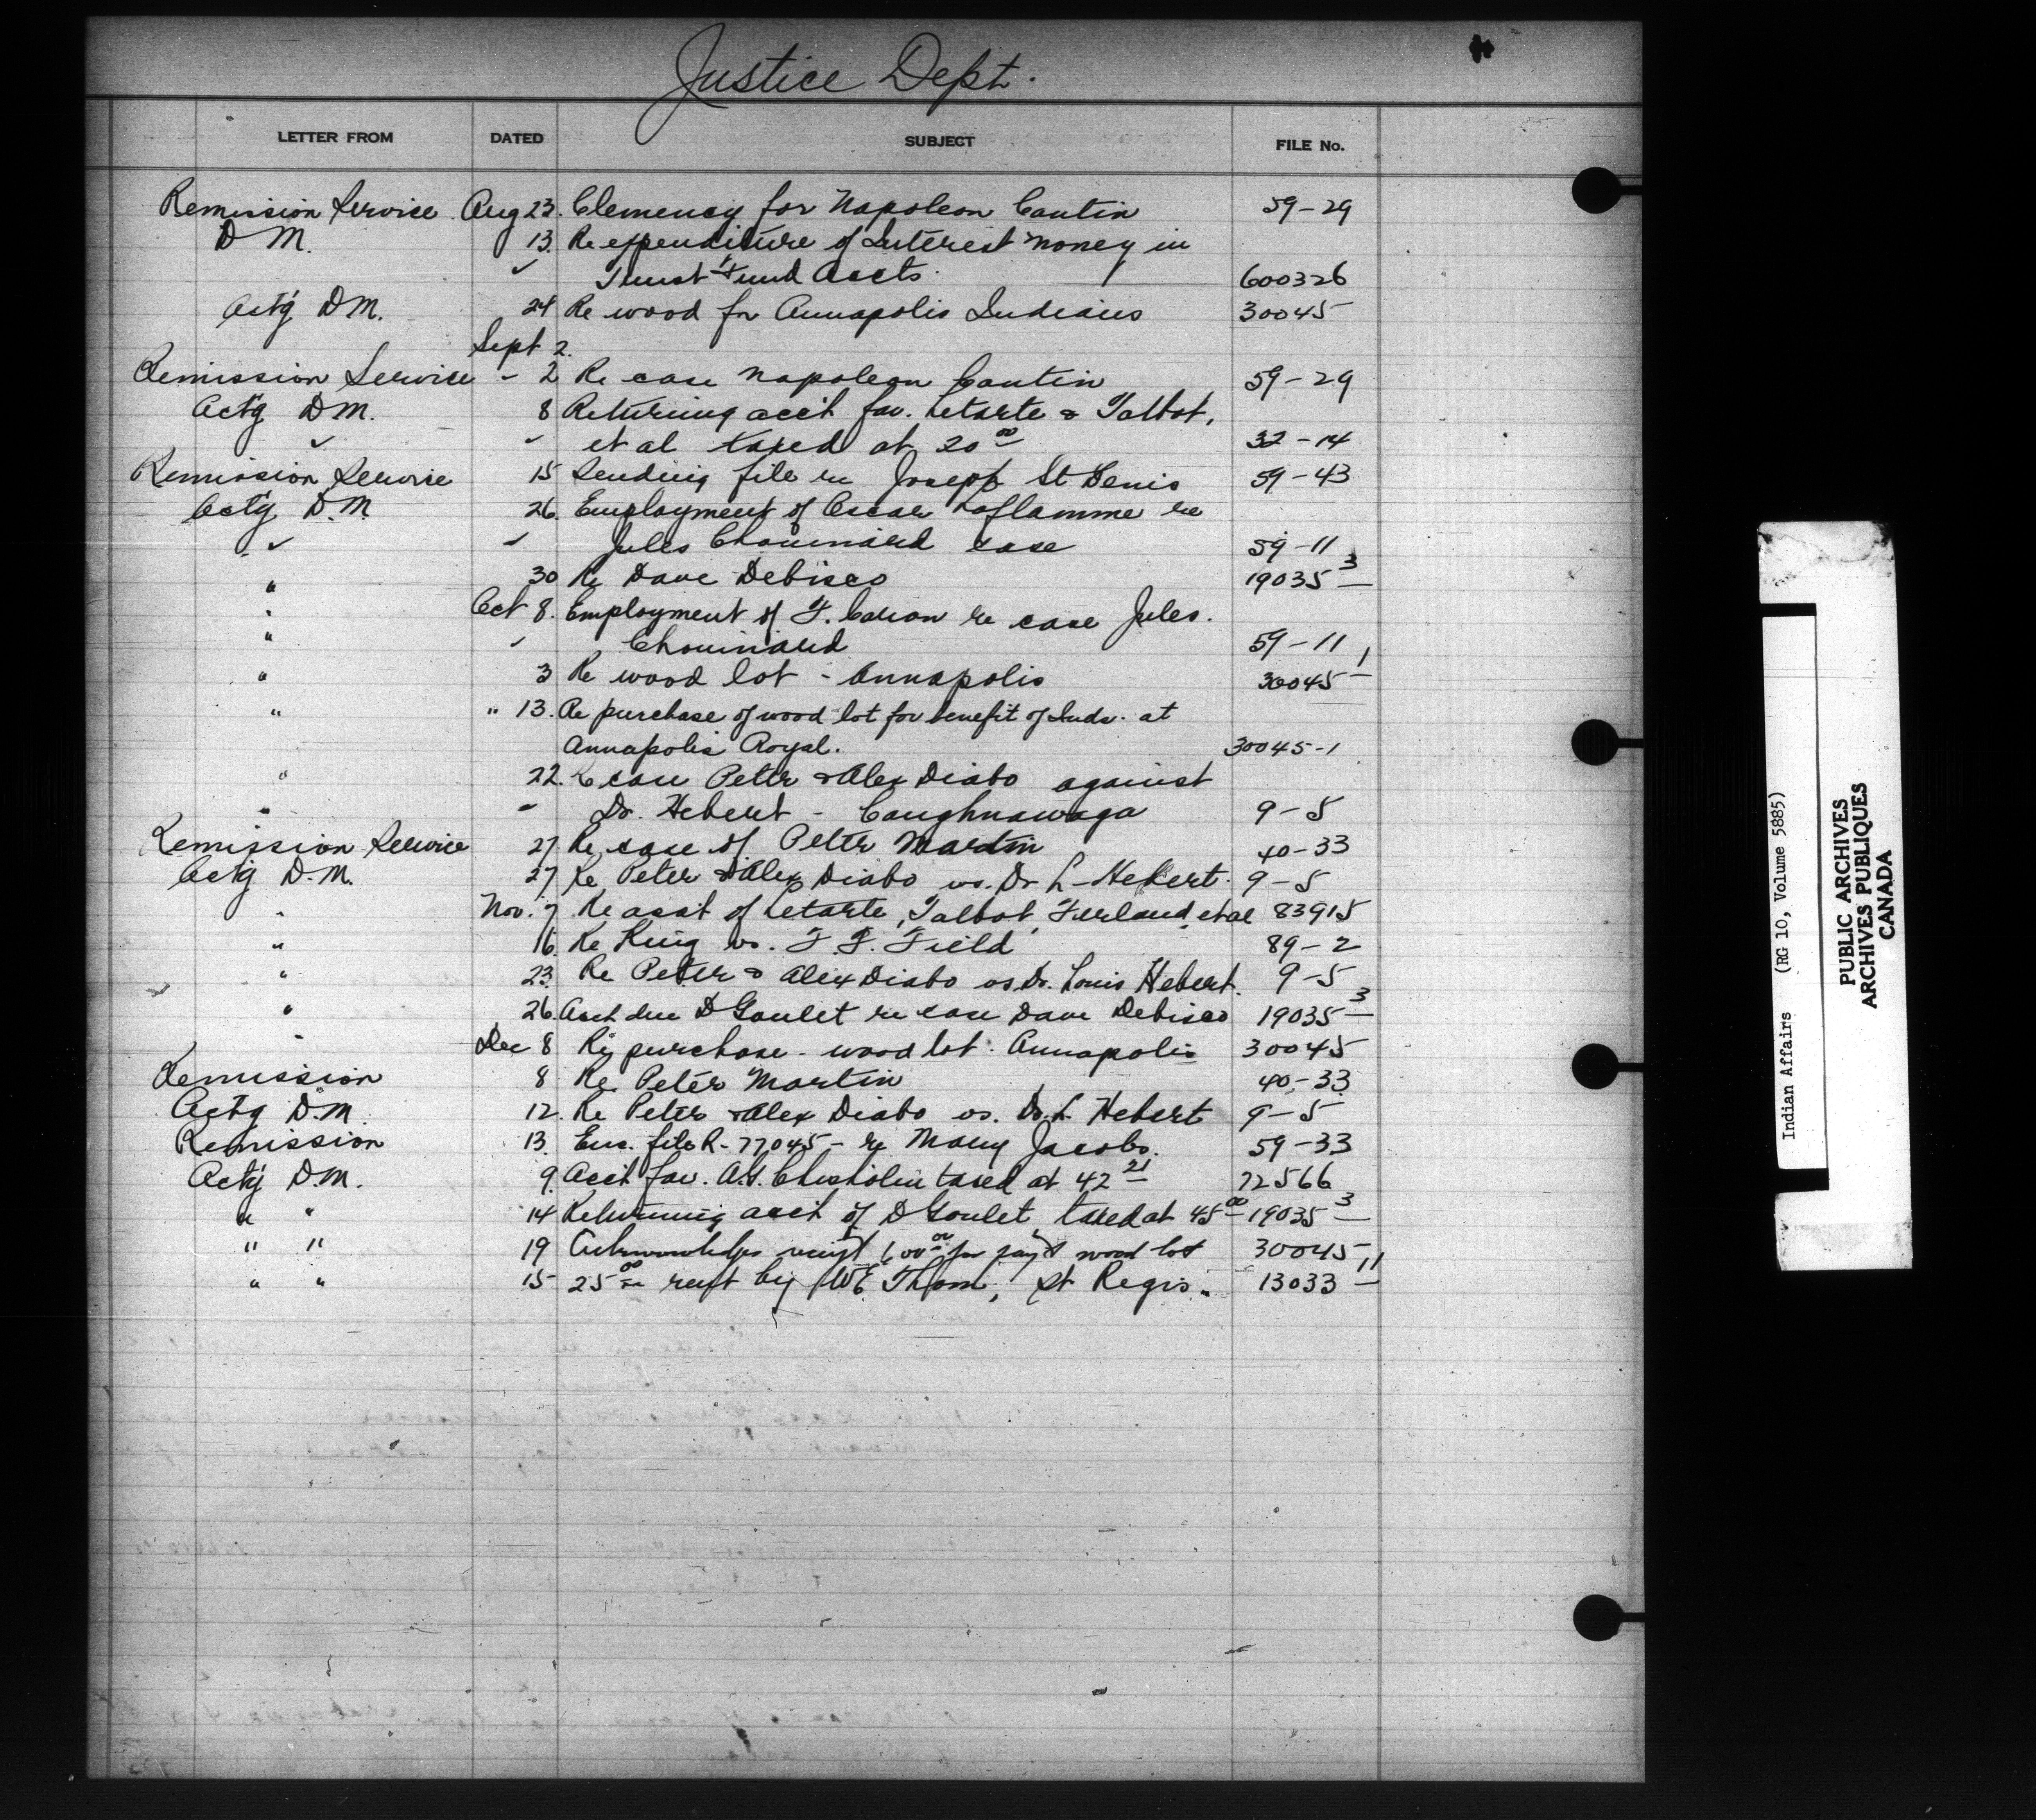 Justice Dept.
LETTER FROM DATED SUBJECT FILE No.
Remission Service Aug 23. Clemency for Napoleon Cantin 59-29
D M. 13. Re expenditure of Interest money in
✓ Trust Fund Accts. 600326
Act'g DM. 24 Re wood for Annapolis Indians 30045
Sept 2.
Remission Service - 2 Re case Napoleon Cantin 59-29
Act'g DM. 8 Returning acct fav. Letarte & Talbot,
✓ ✓ et al taxed at 20 00 32-14
Remission Service 15 Sending file re Joseph St Denis 59-43
Act'g D.M. 26. Employment of Oscar Laflamme re
✓ ✓ Jules Chouinard case 59-11
" 30 Re Dave Debisco 19035 3
" Oct 8. Employment of F. Caron re case Jules.
" ✓ Chouinard 59-11
" 3 Re wood lot - Annapolis 30045 1
" " 13. Re purchase of wood lot for benefit of Inds. at
Annapolis Royal. 30045-1
" 22. Re case Peter & Alex Diabo against
" " Dr. Hebert - Caughnawaga 9-5
Remission Service 27 Re case of Peter Martin 40-33
Act'g D.M. 27 Re Peter & Alex Diabo vs. Dr L- Hebert. 9-5
" Nov. 7 Re acct of Letarte, Talbot, Ferland, et al 83915
" 16 Re King vs. F. F. Field 89-2
" 23. Re Peter & Alex Diabo vs Dr. Louis Hebert. 9-5
" 26. Acct due D Goulet re case Dave Debisco 19035 3
" Dec 8 Re purchase - wood lot - Annapolis 30045
Remission 8 Re. Peter Martin 40-33
Act'g D.M. 12. Re Peter & Alex Diabo vs. Dr. L. Hebert 9-5
Remission 13. Enc. file R-77045- re Mary Jacobs. 59-33
Act'g D.M. 9. Acct fav. A.G. Chisholm taxed at 42 21 72566
" " 14 Returning acct of D Goulet taxed at 45 00 19035 3
" " 19 Acknowledges receipt 600 00 for pay't wood lot 30045
" " 15 25 00 rent by WE Thom, St Regis. 13033 11
Indian Affairs (RG 10, Volume 5885)
PUBLIC ARCHIVES
ARCHIVES PUBLIQUES
CANADA